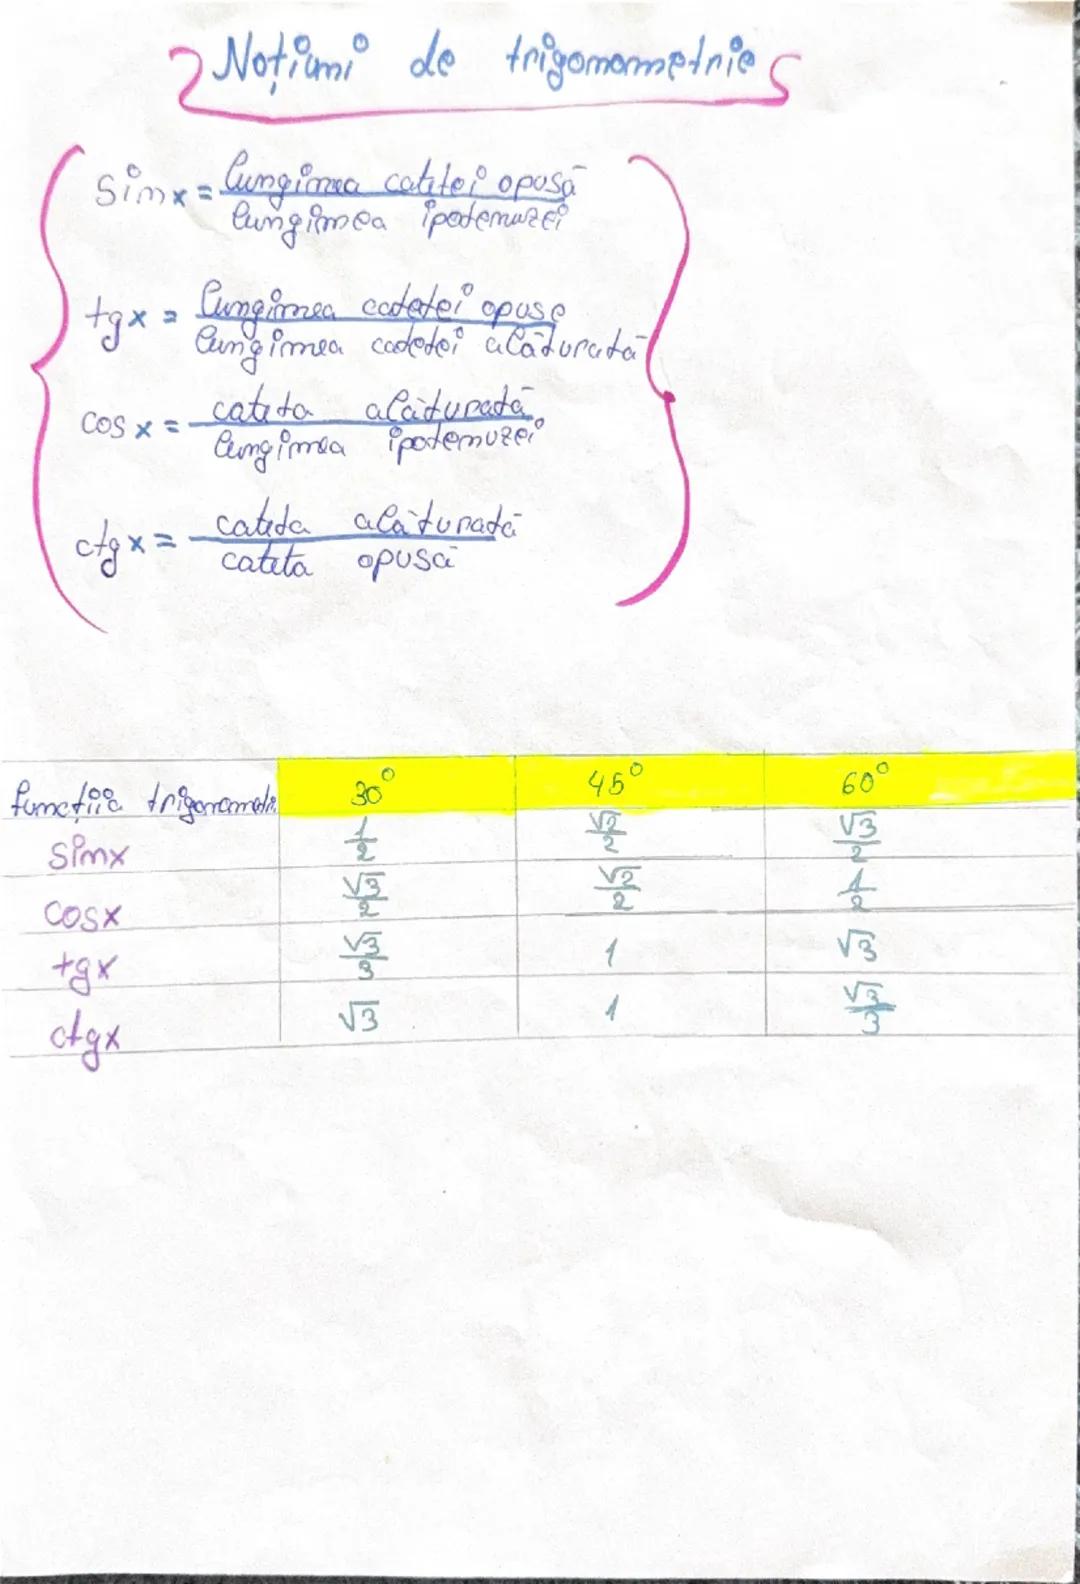 Noțiuni de trigonometrie
sin x = lungimea catetei opusă
lungimea ipotenuzei
tg x = lungimea catetei opuse
lungimea catetei alăturată
cos x = cateta alăturată
lungimea ipotenuzei
ctg x = cateta alăturată
cateta opusă
funcția trigonometri. 30° 45° 60°
sinx 1/2 √2/2 √3/2
cosx √3/2 √2/2 1/2
tgx √3/3 1 √3
ctgx √3 1 √3/3